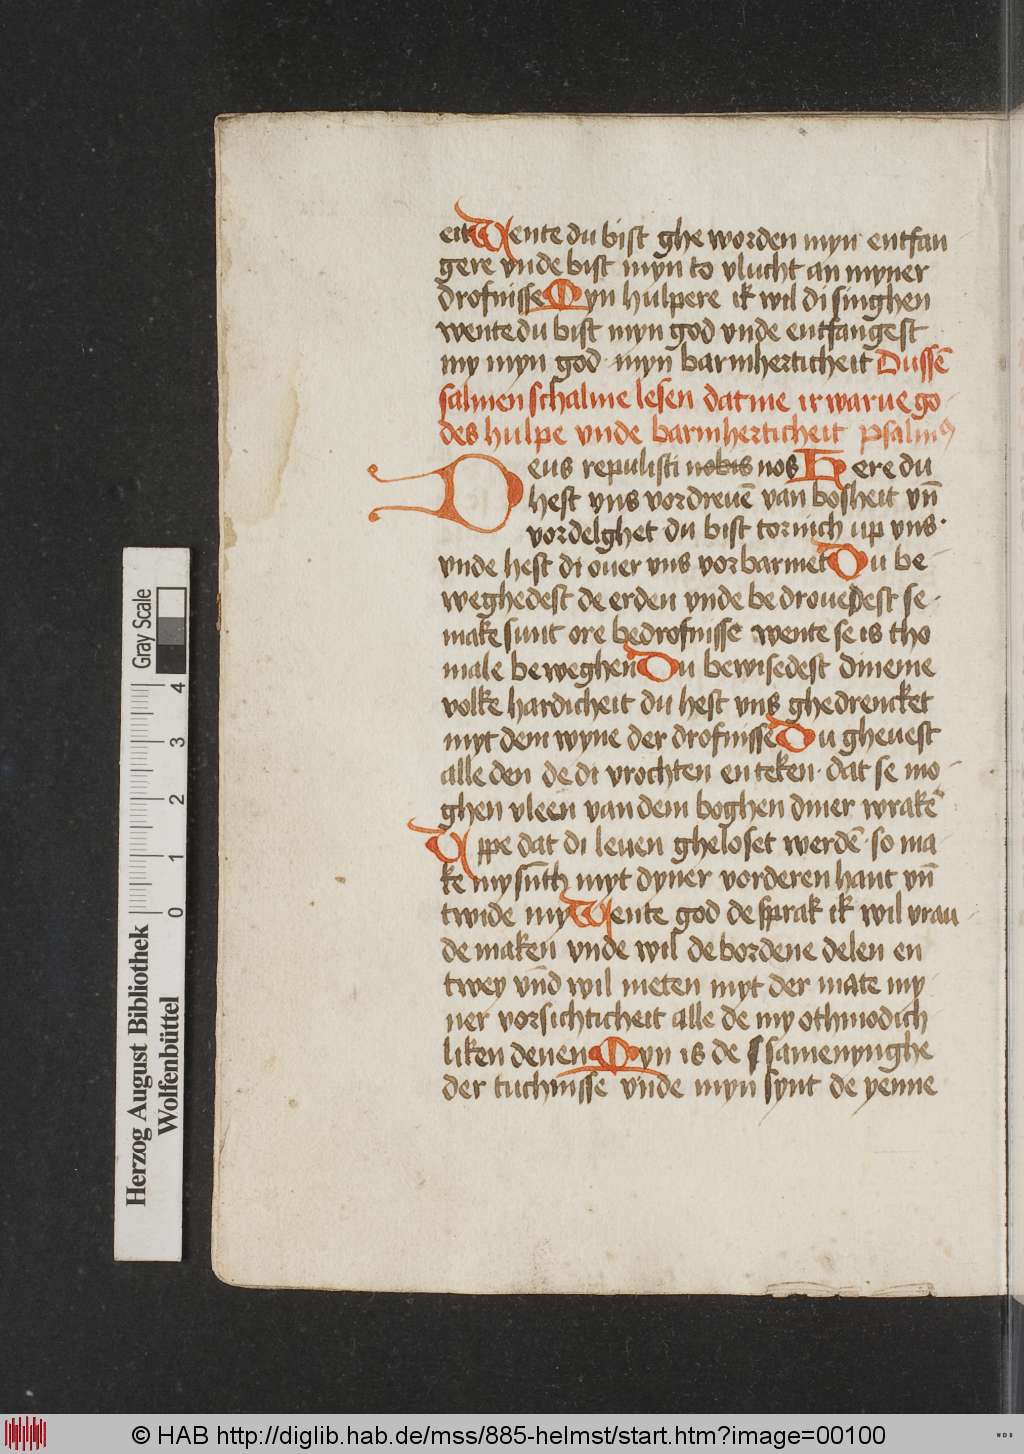 eit Wente du bist ghe worden myn entfan
gere vnde bist myn to vlucht an myner
drofnisse Myn hulpere ik wil di singhen
wente du bist myn god vnde entfangest
my myn god · myn barmherticheit Dussē
salmen schalme lesen dat me irwarue go
des hulpe vnde barmherticheit psalmꝰ
Deus repulisti nobis nos Here du
hest vns vordreuē van bosheit vn̄
vordelghet du bist tornich up vns ·
vnde hest di ouer vns vorbarmet Du be
weghedest de erden vnde bedrouedest se ·
make sunt ore bedrofnisse wente se is tho
male beweghen Du bewisedest dineme
volke hardicheit du hest vns ghedrencket
myt dem wyne der drofnisse Du gheuest
alle den de di vrochten en teken · dat se mo
ghen vleen van dem boghen diner wrake
Uppe dat di leuen gheloset werdē · so ma
ke my sūth myt dyner vorderen hant vn̄
twide my Wente god de sprak ik wil vrau
de maken vnde wil de bordene delen en
twey vn̄d wil meten myt der mate my
ner vorsichticheit alle de my othmodich
liken denen Myn is de samenynghe
der tuchnisse vnde myn synt de yenne
Gray Scale
4
3
2
1
0
Herzog August Bibliothek
Wolfenbüttel
© HAB http://diglib.hab.de/mss/885-helmst/start.htm?image=00100
WDB